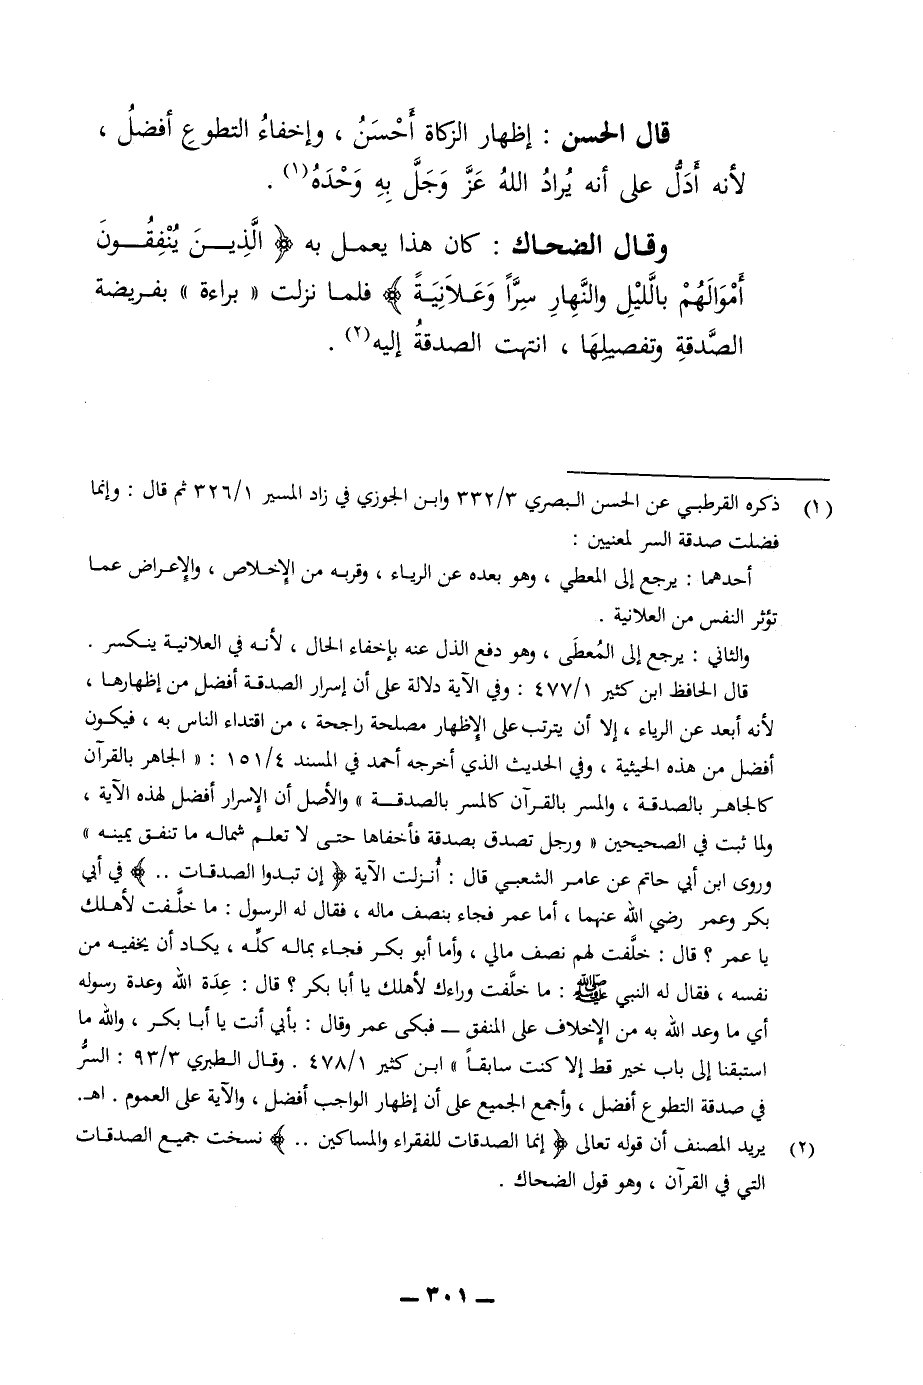 قال الحسن : إظهار الزكاة أَحْسَنُ ، وإخفاءُ التطوع أفضلُ ،
لأنه أَدَلُّ على أنه يُرادُ اللهُ عَزَّ وَجَلَّ بِهِ وَحْدَهُ(١) .
وقال الضحاك : كان هذا يعمل به ﴿ الَّذِينَ يُنْفِقُونَ
أَمْوَالَهُمْ بالَّليْلِ والنَّهارِ سِرَّاً وَعَلاَنِيَةً ﴾ فلما نزلت « براءة » بفريضة
الصَّدقةِ وتفصيلِهَا ، انتهت الصدقةُ إليه(٢) .
(١) ذكره القرطبي عن الحسن البصري ٣٣٢/٣ وابن الجوزي في زاد المسير ٣٢٦/١ ثم قال : وإنما
فضلت صدقة السر لمعنيين :
أحدهما : يرجع إلى المعطي ، وهو بعده عن الرياء ، وقربه من الإخلاص ، والإعراض عما
تؤثر النفس من العلانية .
والثاني : يرجع إلى المُعطَى ، وهو دفع الذل عنه بإخفاء الحال ، لأنه في العلانية ينكسر .
قال الحافظ ابن كثير ٤٧٧/١ : وفي الآية دلالة على أن إسرار الصدقة أفضل من إظهارها ،
لأنه أبعد عن الرياء ، إلا أن يترتب على الإظهار مصلحة راجحة ، من اقتداء الناس به ، فيكون
أفضل من هذه الحيثية ، وفي الحديث الذي أخرجه أحمد في المسند ١٥١/٤ : « الجاهر بالقرآن
كالجاهر بالصدقة ، والمسر بالقرآن كالمسر بالصدقة » والأصل أن الإسرار أفضل لهذه الآية ،
ولما ثبت في الصحيحين « ورجل تصدق بصدقة فأخفاها حتى لا تعلم شماله ما تنفق يمينه »
وروى ابن أبي حاتم عن عامر الشعبي قال : أُنزلت الآية ﴿ إن تبدوا الصدقات .. ﴾ في أبي
بكر وعمر رضي الله عنهما ، أما عمر فجاء بنصف ماله ، فقال له الرسول : ما خلَّفت لأهلك
يا عمر ؟ قال : خلَّفت لهم نصف مالي ، وأما أبو بكر فجاء بماله كلِّه ، يكاد أن يخفيه من
نفسه ، فقال له النبي ﷺ : ما خلَّفت وراءك لأهلك يا أبا بكر ؟ قال : عِدَة الله وعدة رسوله
أي ما وعد الله به من الإخلاف على المنفق ــ فبكى عمر وقال : بأبي أنت يا أبا بكر ، والله ما
استبقنا إلى باب خير قط إلا كنت سابقاً » ابن كثير ٤٧٨/١ . وقال الطبري ٩٣/٣ : السرُّ
في صدقة التطوع أفضل ، وأجمع الجميع على أن إظهار الواجب أفضل ، والآية على العموم . اهـ.
(٢) يريد المصنف أن قوله تعالى ﴿ إنما الصدقات للفقراء والمساكين .. ﴾ نسخت جميع الصدقات
التي في القرآن ، وهو قول الضحاك .
ــ ٣٠١ ــ